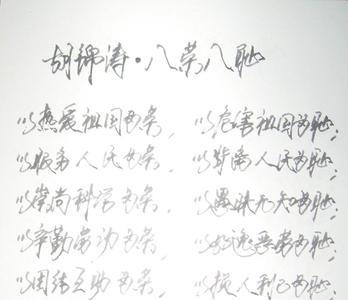 胡锦涛·八荣八耻
以热爱祖国为荣,以危害祖国为耻;
以服务人民为荣,以背离人民为耻;
以崇尚科学为荣,以愚昧无知为耻;
以辛勤劳动为荣,以好逸恶劳为耻;
以团结互助为荣,以损人利己为耻;